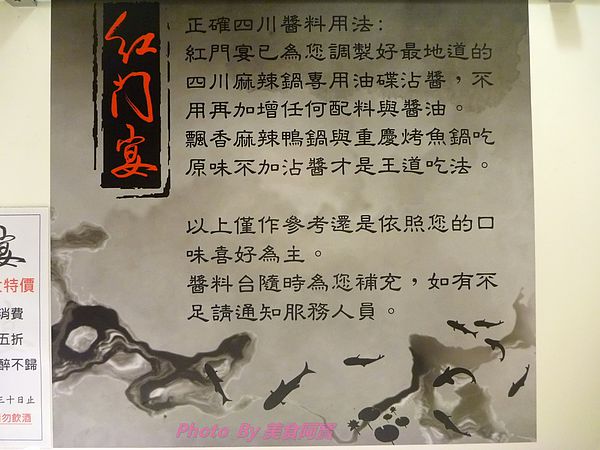 紅門宴
正確四川醬料用法:
紅門宴已為您調製好最地道的
四川麻辣鍋專用油碟沾醬，不
用再加增任何配料與醬油。
飄香麻辣鴨鍋與重慶烤魚鍋吃
原味不加沾醬才是王道吃法。
以上僅作參考還是依照您的口
味喜好為主。
醬料台隨時為您補充，如有不
足請通知服務人員。
宴
特價
消費
五折
醉不歸
三十日止
勿飲酒
Photo By 美食阿買